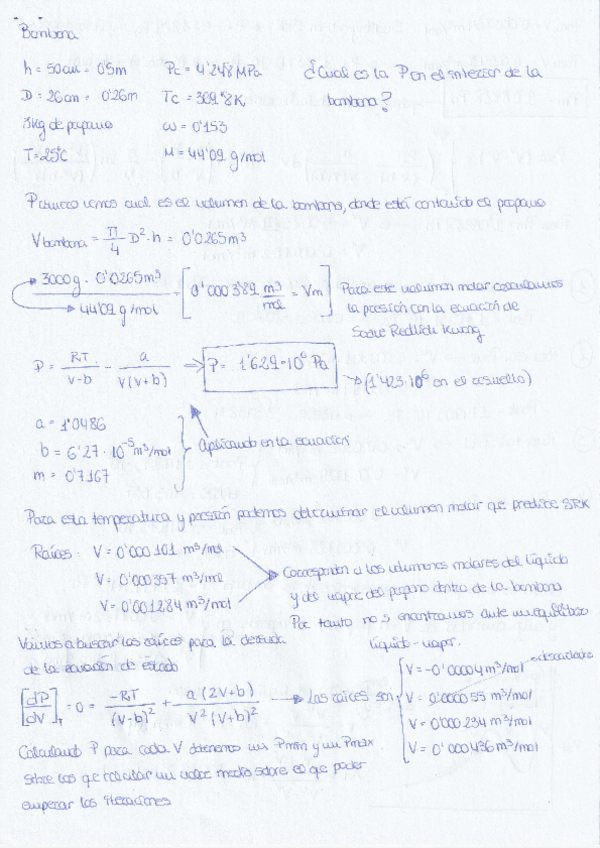 Bombona
h = 50cm = 0'5m    Pc = 4'248 MPa    ¿Cual es la P en el interior de la
D = 26cm = 0'26m    Tc = 369'8K    bombona?
3Kg de propano    ω = 0'153
T = 25°C    M = 44'09 g/mol
Primero vemos cual es el volumen de la bombona, donde está contenido el propano
V bombona = π/4 D²·h = 0'0265m³
3000g · 0'0265m³ / 44'09 g/mol = [0'000389 m³/mol = Vm]    Para este volumen molar calculamos
la presión con la ecuación de
Soave Redlich Kwong
P = RT/(v-b) - a/(v(v+b)) ⇒ P = 1'629·10⁶ Pa
(1'423·10⁶ en el resuelto)
a = 1'0486
b = 6'27·10⁻⁵ m³/mol    Aplicando en la ecuación
m = 0'7167
Para esta temperatura y presión podemos determinar el volumen molar que predice SRK
Raíces: V = 0'000101 m³/mol
V = 0'000357 m³/mol    Corresponden a los volumenes molares del líquido
V = 0'001284 m³/mol    y del vapor del propano dentro de la bombona
Por tanto nos encontramos ante un equilibrio
líquido-vapor.
Vamos a buscar las raíces para la derivada
de la ecuación de estado
[dP/dV]T = 0 = -RT/(V-b)² + a(2V+b)/(V²(V+b)²) → Las raíces son
V = -0'00004 m³/mol → descartada
V = 0'000055 m³/mol
V = 0'000234 m³/mol
V = 0'000436 m³/mol
Calculando P para cada V obtenemos un Pmín y un Pmax
sobre los que calcular un valor medio sobre el que poder
empezar las iteraciones